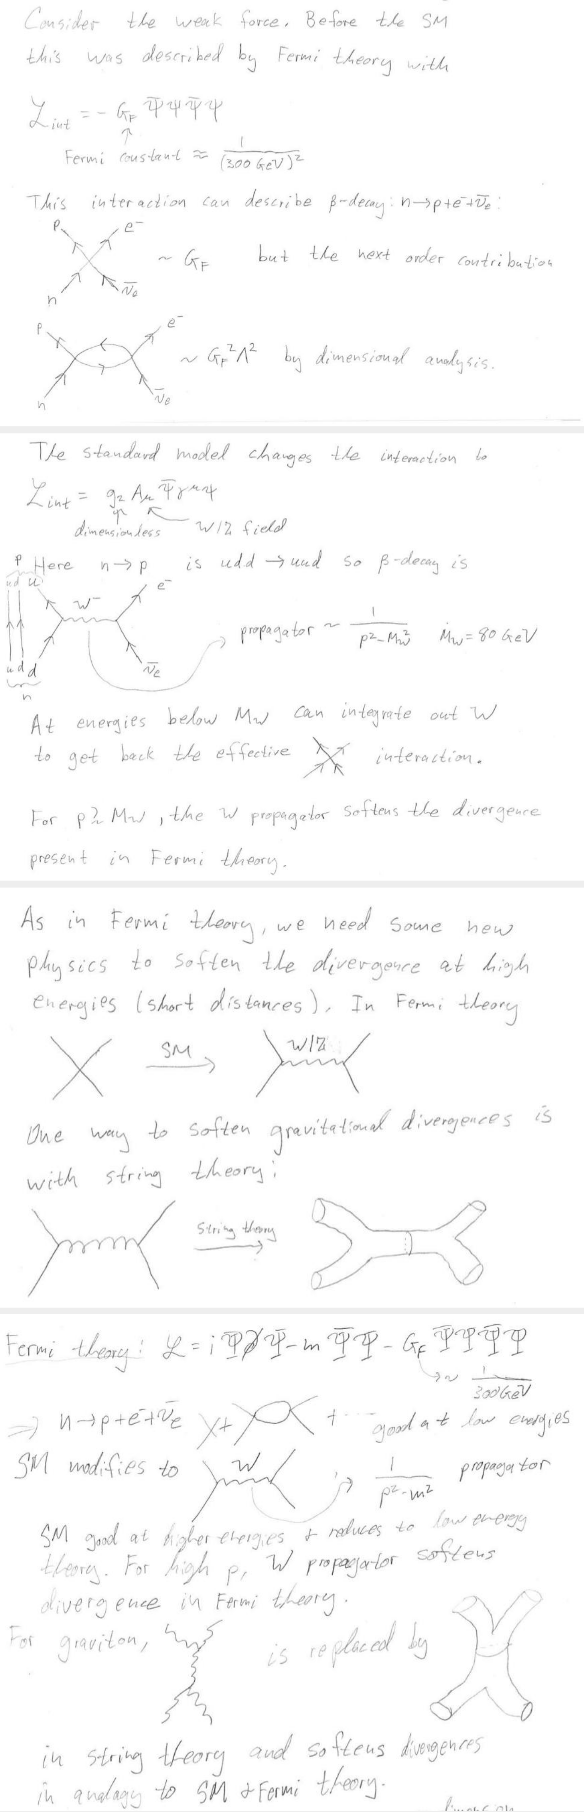 Consider the weak force. Before the SM
this was described by Fermi theory with
ℒint = - GF Ψ̄Ψ Ψ̄Ψ
Fermi constant ≈ 1/(300 GeV)²
This interaction can describe β-decay: n→p+e⁻+ν̄e:
p e⁻
~ GF but the next order contribution
n ν̄e
p e⁻
~ GF²Λ² by dimensional analysis.
n ν̄e
The standard model changes the interaction to
ℒint = g₂ Aμ Ψ̄γ^μΨ
dimensionless W/Z field
p Here n→p is udd → uud so β-decay is
ud u W⁻ e⁻
propagator ~ 1/(p²-Mw²) Mw = 80 GeV
u d d ν̄e
n
At energies below Mw can integrate out W
to get back the effective interaction.
For p≳Mw, the W propagator softens the divergence
present in Fermi theory.
As in Fermi theory, we need some new
physics to soften the divergence at high
energies (short distances). In Fermi theory
SM W/Z
One way to soften gravitational divergences is
with string theory:
string theory
Fermi theory: ℒ = i Ψ̄∂̸Ψ - m Ψ̄Ψ - GF Ψ̄ΨΨ̄Ψ
~ 1/300GeV
⇒ n→p+e⁻+ν̄e + + ... good at low energies
SM modifies to W 1/(p²-m²) propagator
SM good at higher energies + reduces to low energy
theory. For high p, W propagator softens
divergence in Fermi theory.
For graviton, is replaced by
in string theory and softens divergences
in analogy to SM & Fermi theory.